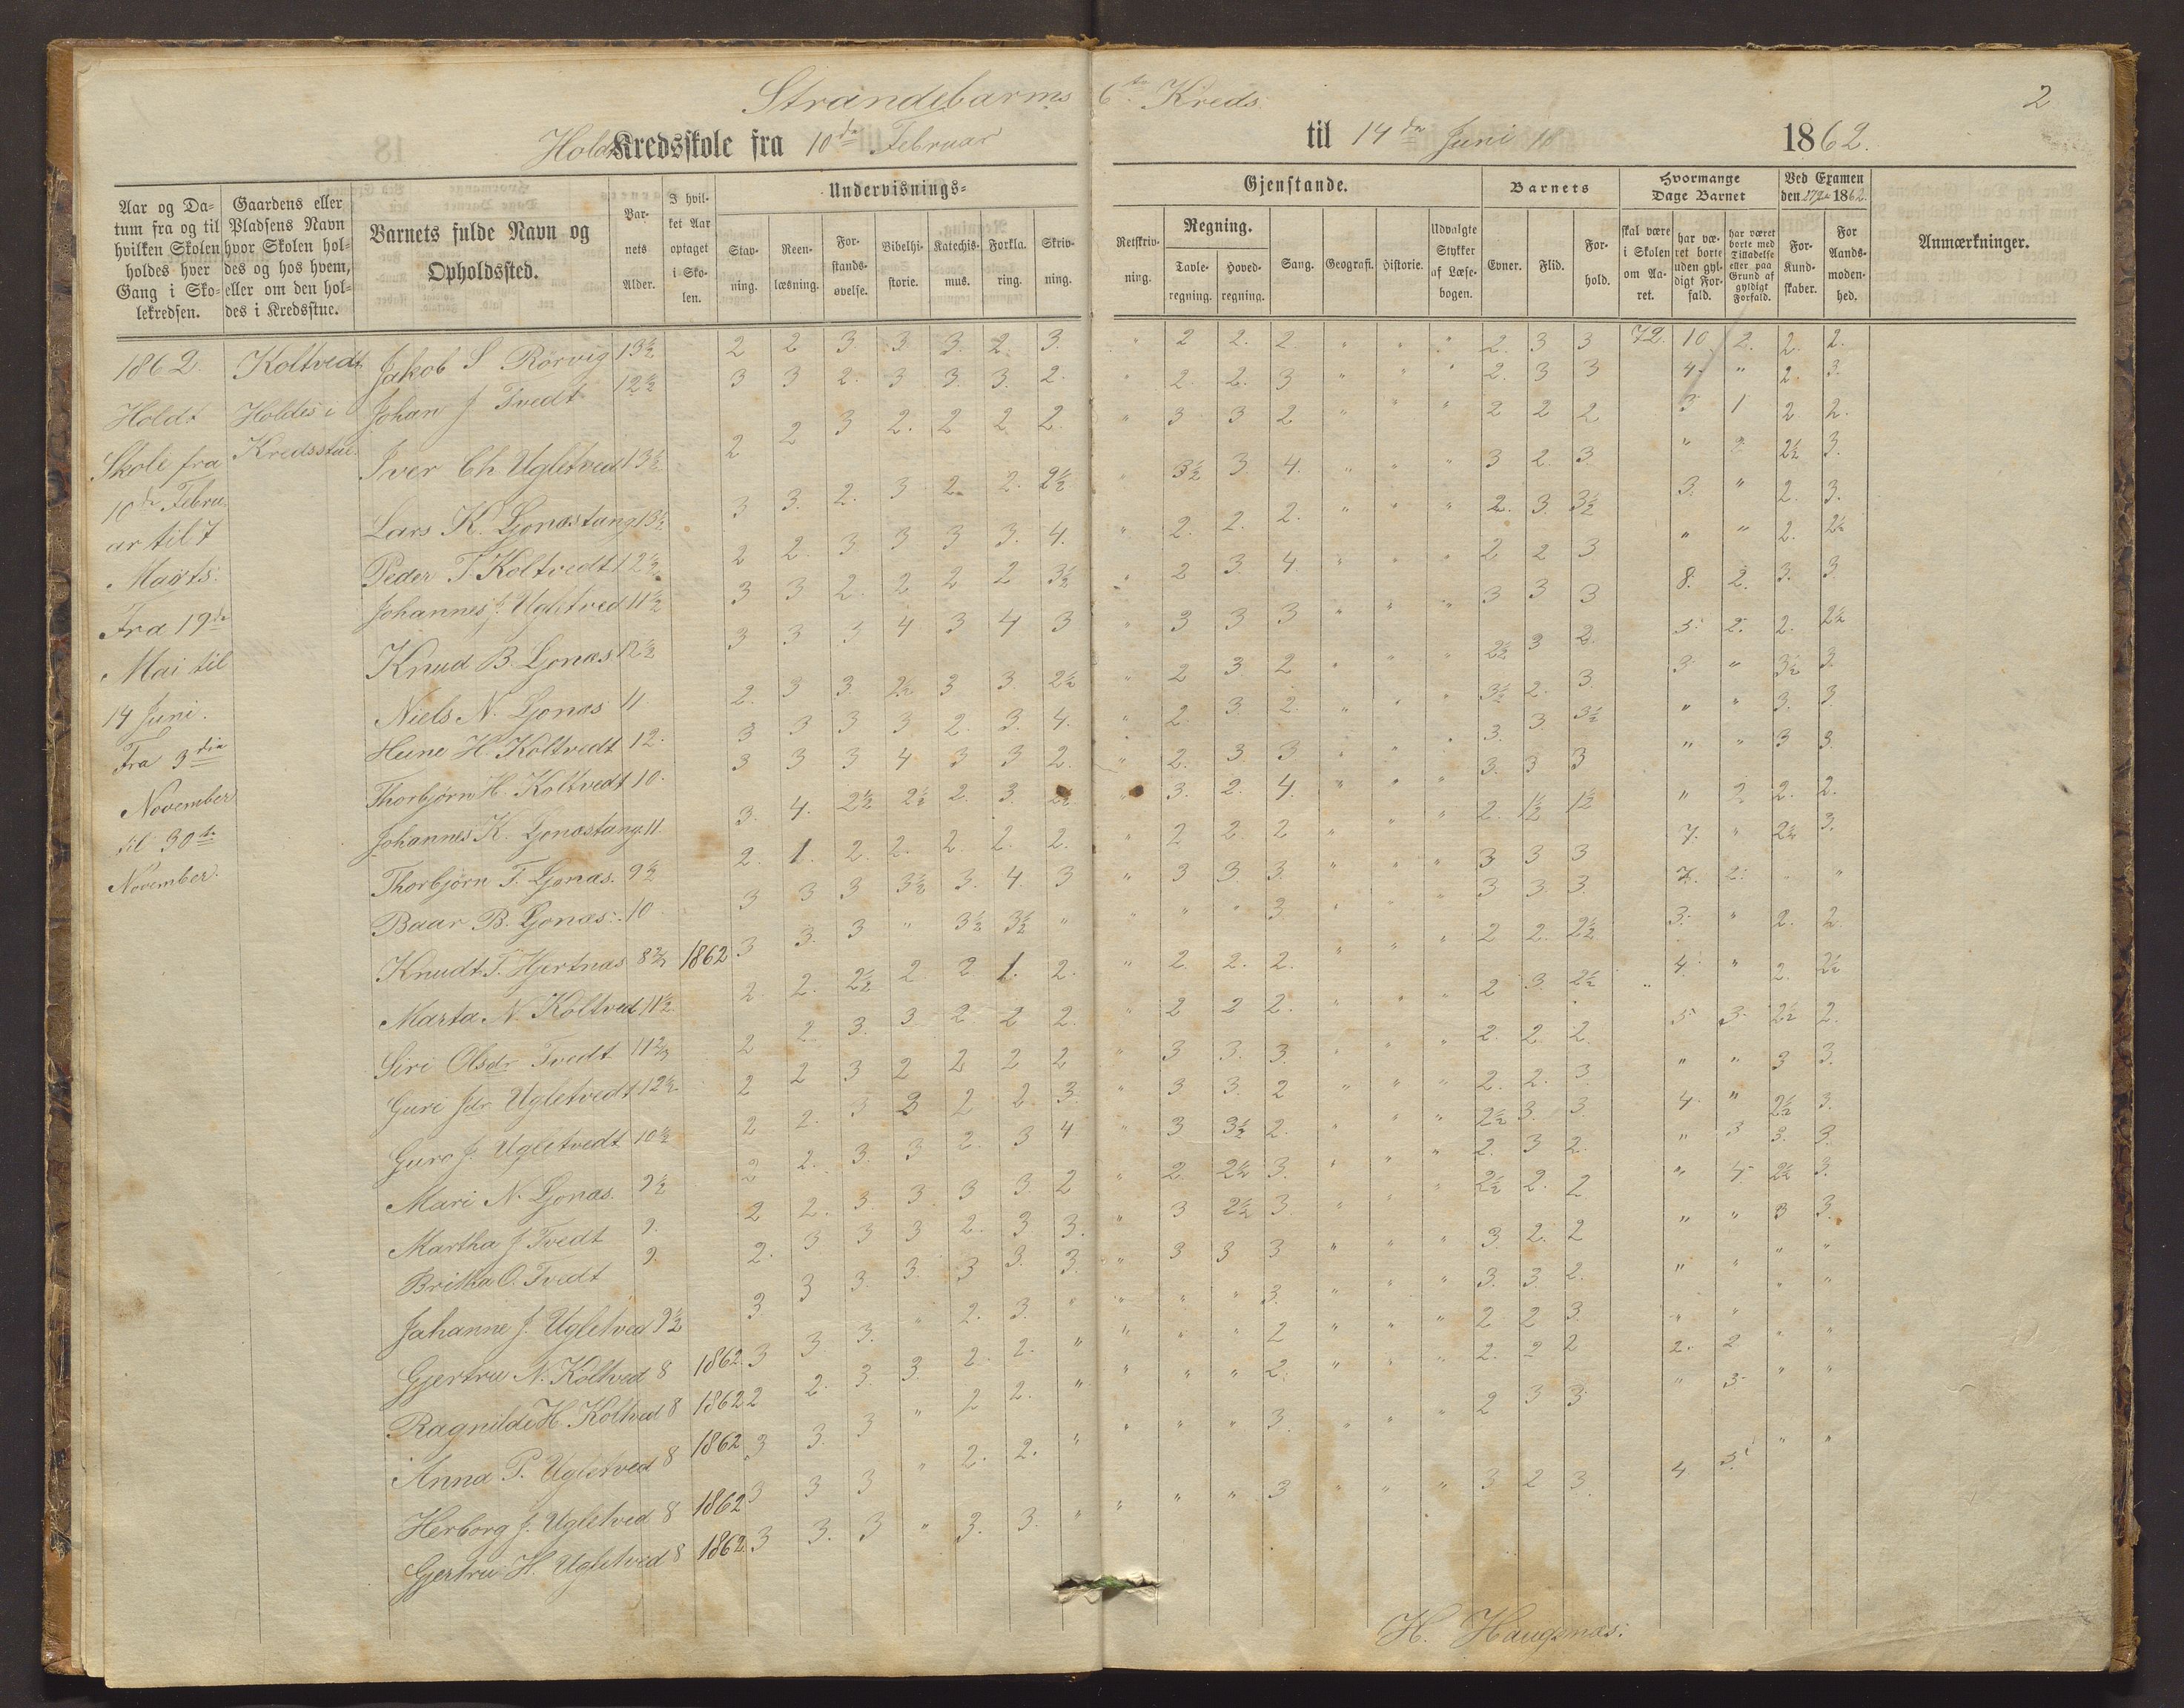 Strandebarms 6te Kreds. 2
Holdt Kredsskole fra 10de Februar til 14de Juni 18 1862.
Aar og Datum fra og til hvilken Skolen holdes hver Gang i Skolekredsen.
Gaardens eller Pladsens Navn hvor Skolen holdes og hos hvem, eller om den holdes i Kredsstue.
Barnets fulde Navn og Opholdssted.
Barnets Alder.
I hvilket Aar optaget i Skolen.
Undervisnings=
Stavning.
Reenlæsning.
Forstandsøvelse.
Bibelhistorie.
Katechismus.
Forklaring.
Skrivning.
Gjenstande.
Retskrivning.
Regning.
Tavleregning.
Hovedregning.
Sang.
Geografi.
Historie.
Udvalgte Stykker af Læsebogen.
Barnets
Evner.
Flid.
Forhold.
Hvormange Dage Barnet
skal være i Skolen om Aaret.
har været borte uden gyldigt Forfald.
har været borte med Tilladelse eller paa Grund af gyldigt Forfald.
Ved Examen den 1862.
For Kundskaber.
For Aandsmodenhed.
Anmærkninger.
1862.
Holdt
Skole fra
10de Febru
ar til 7
Marts.
Fra 19de
Mai til
14 Juni.
Fra 3die
November
til 30te
November.
Koltvedt
Holdes i
Kredsstue.
Jakob S Rørvig 13½ 2 2 3. 3. 3. 2. 3. " 2 2. 2. " " " 2. 3 3 72. 10. 2. 2. 2.
Johan J Tvedt 12½ 3 3 2. 3 3. 3. 2. " 2. 2. 3 " " " 2. 3 3 4. " 2. 3.
Iver Ch Ugletved 13½ 2 2 3 2. 2 2 2. " 3 3 2 " " " 2 2 2 3 1 2. 2.
Lars K. Ljonæstang 13½ 3 3. 2. 3 2. 2. 2½ " 3½ 3. 4. " " " 3 2. 3. " 2 2½ 3.
Peder T. Koltvedt 12½ 2 2. 3 3 3 3. 4. " 2. 2. 2. " " " 2. 3. 3½ 3. " 2. 3.
Johannes J. Ugletved 11½ 3 3 2. 2 2 2 3½ " 2 3. 4. " " " 2 2 3 " " 2. 2½
Knud B. Ljonæs 12½ 3 3 3 4. 3 4 3 " 3 3 3 " " " 3 3 3 8. 2. 3. 3
Niels N. Ljonæs 11. 2. 3 3. 2½ 3 3. 2½ " 2 3 2 " " " 2½ 3 2. 5. 2. 2. 2½
Heine H. Koltvedt 12. 3 3 3 3 2. 3. 4. " 2. 3. 2. " " " 3½ 2. 3. 3. " 3½ 3.
Thorbjørn H. Koltvedt 10. 3 3 3 4 3 3 2. " 2. 3 3 " " " 3. 3. 3½ " " 3. 3.
Johannes K. Ljonæstang. 11. 3. 4. 2½ 2½ 2. 3. 2½ " 3. 2. 4. " " " 3. 3 3 " " 3 3.
Thorbjørn T. Ljonæs. 9½ 2. 1. 2. 2. 2. 2. 2. " 2 2. 2 " " " 2. 1½ 1½ " 2 2. 2.
Baar B. Ljonæs. 10. 3 3 3 3½ 3. 4. 3 " 3 3. 3. " " " 3 3 3 7. " 2½ 3.
Knudt T. Hjertnæs 8¾ 1862 3 3. 3 " 3½ 3½ " " " " 3. " " " 3 3. 3. 7. 2. " "
Marta N. Koltved 11½ 2. 2. 2½ 2 2 1. 2. " 2 2. 2. " " " 2 2. 2½ 3. " 2. 2
Siri Olsdr Tvedt 11¾ 2 2 3. 3 2 2 2. " 2 2 2. " " " 2 3. 2½ 4. " 2. 2½
Guri Jdr Ugletvedt 12½ 2 2 3 2 2 2 2 " 3 3. 3. " " " 2. 2. 2. 5 3. 2½ 2.
Guro J. Ugletvedt 10½ 2 2. 3 3 2 2. 3. " 3 3. 2 " " " 2. 2. 3 " " 3 3.
Mari N. Ljonæs. 9½ 2 2. 3. 3 2. 3 4 " 3 3½ 2. " " " 2½ 3. 3. 4. " 2½ 3.
Martha J Tvedt 9. 2 2. 3. 3. 3 3 2 " 2. 2½ 3. " " " 2. 3 2. " 3 3. 3.
Britha O. Tvedt 9. 2. 3 3 3 2. 3 3. " 3 2½ 3. " " " 2½ 2. 2. " 4. 2½ 3.
Johanne J. Ugletved 9½ 3 3 3. 3. 3 3. 3. " 3 3 3 " " " 3. 2. 2 " " 3 3.
Gjertru N. Koltved 8 1862. 3 3 3. " 2. 3. " " " " 3. " " " 3. 3. 2. " " " "
Ragnilde H. Koltved 8 1862 2 2. 3. 3. 2. 2. " " " " 2 " " " 2 2 3. " " " "
Anna P. Ugletved 8 1862 3 3. 3 " 2 2. " " " " 2. " " " 2. 2 2 2. 2 " "
Herborg J. Ugletved 8 1862 3 3 3 " 2. 2. " " " " 3. " " " 2 3 3. " 3. " "
Gjertru H. Ugletved 8 1862. 3 3. 3 " 3. 3. " " " " 3 " " " 3 2 3. 4. 3. " "
H. Haugsnæs.